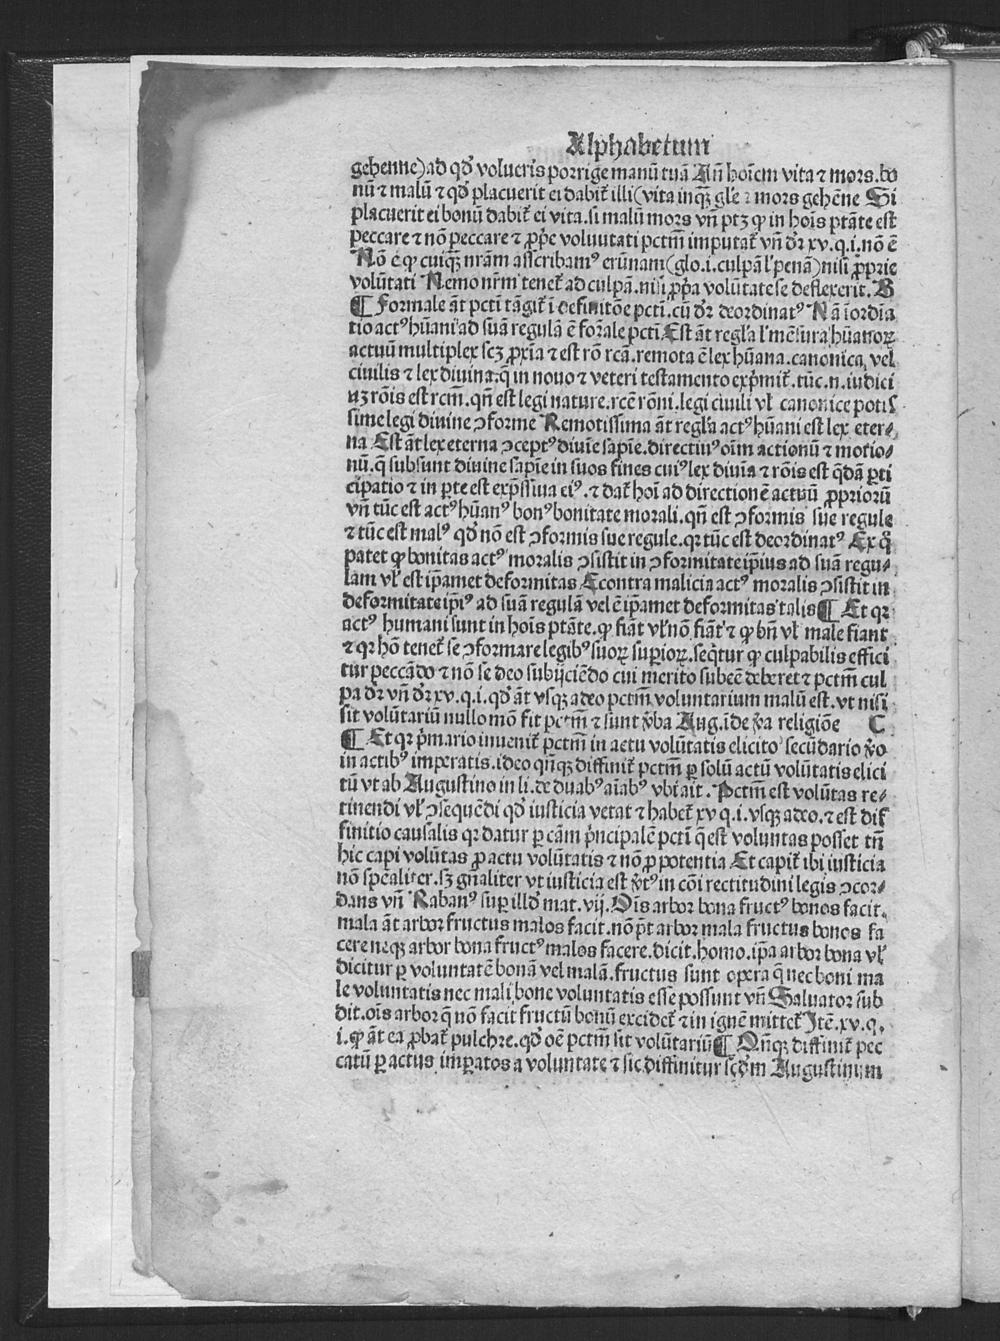 Alphabetum
gehenne) ad qď volueris porrige manū tuā Añ hoīem vita ⁊ mors. bo
nū ⁊ malū ⁊ qď placuerit ei dabit̉ illi (vita inqꝫ glīe ⁊ mors gehēne Si
placuerit ei bonū dabit̉ ei vita. si malū mors vñ ptꝫ ꝙ in hoīs ptāte est
peccare ⁊ nō peccare ⁊ ꝓp̄e voluntati pctm̄ imputat̉ vñ dr̄ xv. q. i. nō ē
Nō ē ꝙ cuiqꝫ nrām asscribamꝰ erūnam (glo. i. culpā l̉ penā) nisi ꝓprie
volūtati Nemo nr̄m tenet̉ ad culpā. nisi ꝓp̄a volūtate se deflexerit. B
¶ Formale āt pcti tāgit̉ ī definitōe pcti. cū dr̄ deordinatꝰ Nā īordīa
tio actꝰ hūani ad suā regulā ē formale pcti Est āt regl̉a l̉ mēsura hūanoꝝ
actuū multiplex scꝫ ꝓxīa ⁊ est rō rcā. remota ē lex hūana. canonica, vel
ciuilis ⁊ lex diuina. q̄ in nouo ⁊ veteri testamento exp̄mit̉. tūc. n. iudici
uꝫ rōis est rcm̄. qn̄ est legi nature. rcē rōni. legi ciuili vl̉ canonice potis
sime legi diuine ↄforme Remotissima āt regl̉a actꝰ hūani est lex eter⸗
na Est āt lex eterna ↄceptꝰ diuīe sapīe. directiuꝰ oīm actionū ⁊ motio⸗
nū. q̄ subsunt diuine sapīe in suos fines cuiꝰ lex diuīa ⁊ rōis est q̄dā ꝑti
cipatio ⁊ in ꝑte est exp̄ssiua eiꝰ. ⁊ dat̉ hoī ad directionē actuū ꝓpriorū
vñ tūc est actꝰ hūanꝰ bonꝰ bonitate morali. qn̄ est ↄformis sue regule
⁊ tūc est malꝰ qď nō est ↄformis sue regule. qꝛ tūc est deordinatꝰ Ex q̊
patet ꝙ bonitas actꝰ moralis ↄsistit in ↄformitate ip̄ius ad suā regu⸗
lam vl̉ est ip̄amet deformitas Econtra malicia actꝰ moralis ↄsistit in
deformitate ip̄iꝰ ad suā regulā vel ē ip̄amet deformitas talis ¶ Et qꝛ
actꝰ humani sunt in hoīs ptāte. ꝙ fiāt vl̉ nō fiāt ⁊ ꝙ bn̄ vl̉ male fiant
⁊ qꝛ hō tenet̉ se ↄformare legibꝰ suoꝝ supioꝝ. seq̄tur ꝙ culpabilis effici
tur peccādo ⁊ nō se deo subijciēdo cui merito subeē deberet ⁊ pctm̄ cul
pa dr̄ vñ dr̄ xv. q. i. qď āt vsqꝫ adeo pctm̄ voluntarium malū est. vt nisi
sit volūtariū nullo mō sit pctm̄ ⁊ sunt v̄ba Aug. īde v̄a religiōe C
¶ Et qꝛ p̄mario inuenit̉ pctm̄ in actu volūtatis elicito secūdario v̄o
in actibꝰ imperatis. ideo qn̄qꝫ diffinit̉ pctm̄ ꝑ solū actū volūtatis elici
tū vt ab Augustino in li. de duabꝰ aīabꝰ vbi ait. Pctm̄ est volūtas re⸗
tinendi vl̉ ↄsequēdi qď iusticia vetat ⁊ habet̉ xv q. i. vsqꝫ adeo. ⁊ est dif
finitio causalis qꝛ datur ꝑ cām p̄ncipalē pcti q̄ est voluntas posset tn̄
hic capi volūtas ꝓ actu volūtatis ⁊ nō ꝓ potentia Et capit̉ ibi iusticia
nō spēaliter. sꝫ gn̄aliter vt iusticia est v̄tꝰ in cōi rectitudini legis ↄcor⸗
dans vñ Rabanꝰ suꝑ illď mat. vij. Oīs arbor bona fructꝰ bonos facit.
mala āt arbor fructus malos facit. nō p̄t arbor mala fructus bonos fa
cere neqꝫ arbor bona fructꝰ malos facere. dicit. homo. ip̄a arbor bona vl̉
dicitur ꝑ voluntatē bonā vel malā. fructus sunt opera q̄ nec boni ma
le voluntatis nec mali bone voluntatis esse possunt vñ Saluator sub
dit. oīs arbor q̄ nō facit fructū bonū excidet̉ ⁊ in ignē mittet̉ Itē. xv. q.
i. ꝙ āt ea ꝓbat̉ pulchre. qď oē pctm̄ sit volūtariū ¶ Qn̄qꝫ diffinit̉ pec
catū ꝑ actus imꝑatos a voluntate ⁊ sic diffinitur scďm Augustinum